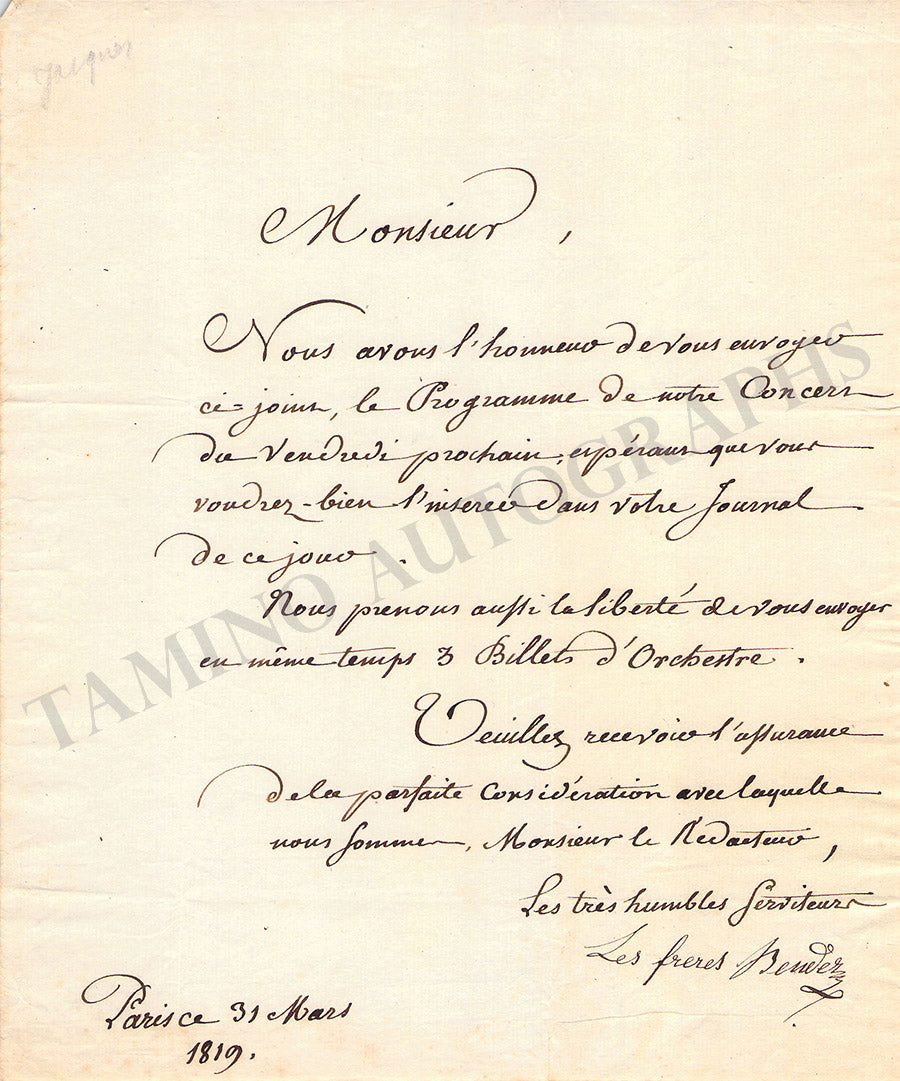 Jacques
Monsieur,
Nous avons l'honneur de vous envoyer
ci=joint, le Programme de notre Concert
du Vendredi prochain, espérant que vous
voudrez-bien l'inserer dans votre Journal
de ce jour.
Nous prenons aussi la liberté de vous envoyer
en même temps 3 Billets d'Orchestre.
Veuillez recevoir l'assurance
de la parfaite Considération avec laquelle
nous sommes, Monsieur le Rédacteur,
Les très humbles Serviteurs
Les freres Bender
Paris ce 31 Mars
1819.
TAMINO AUTOGRAPHS